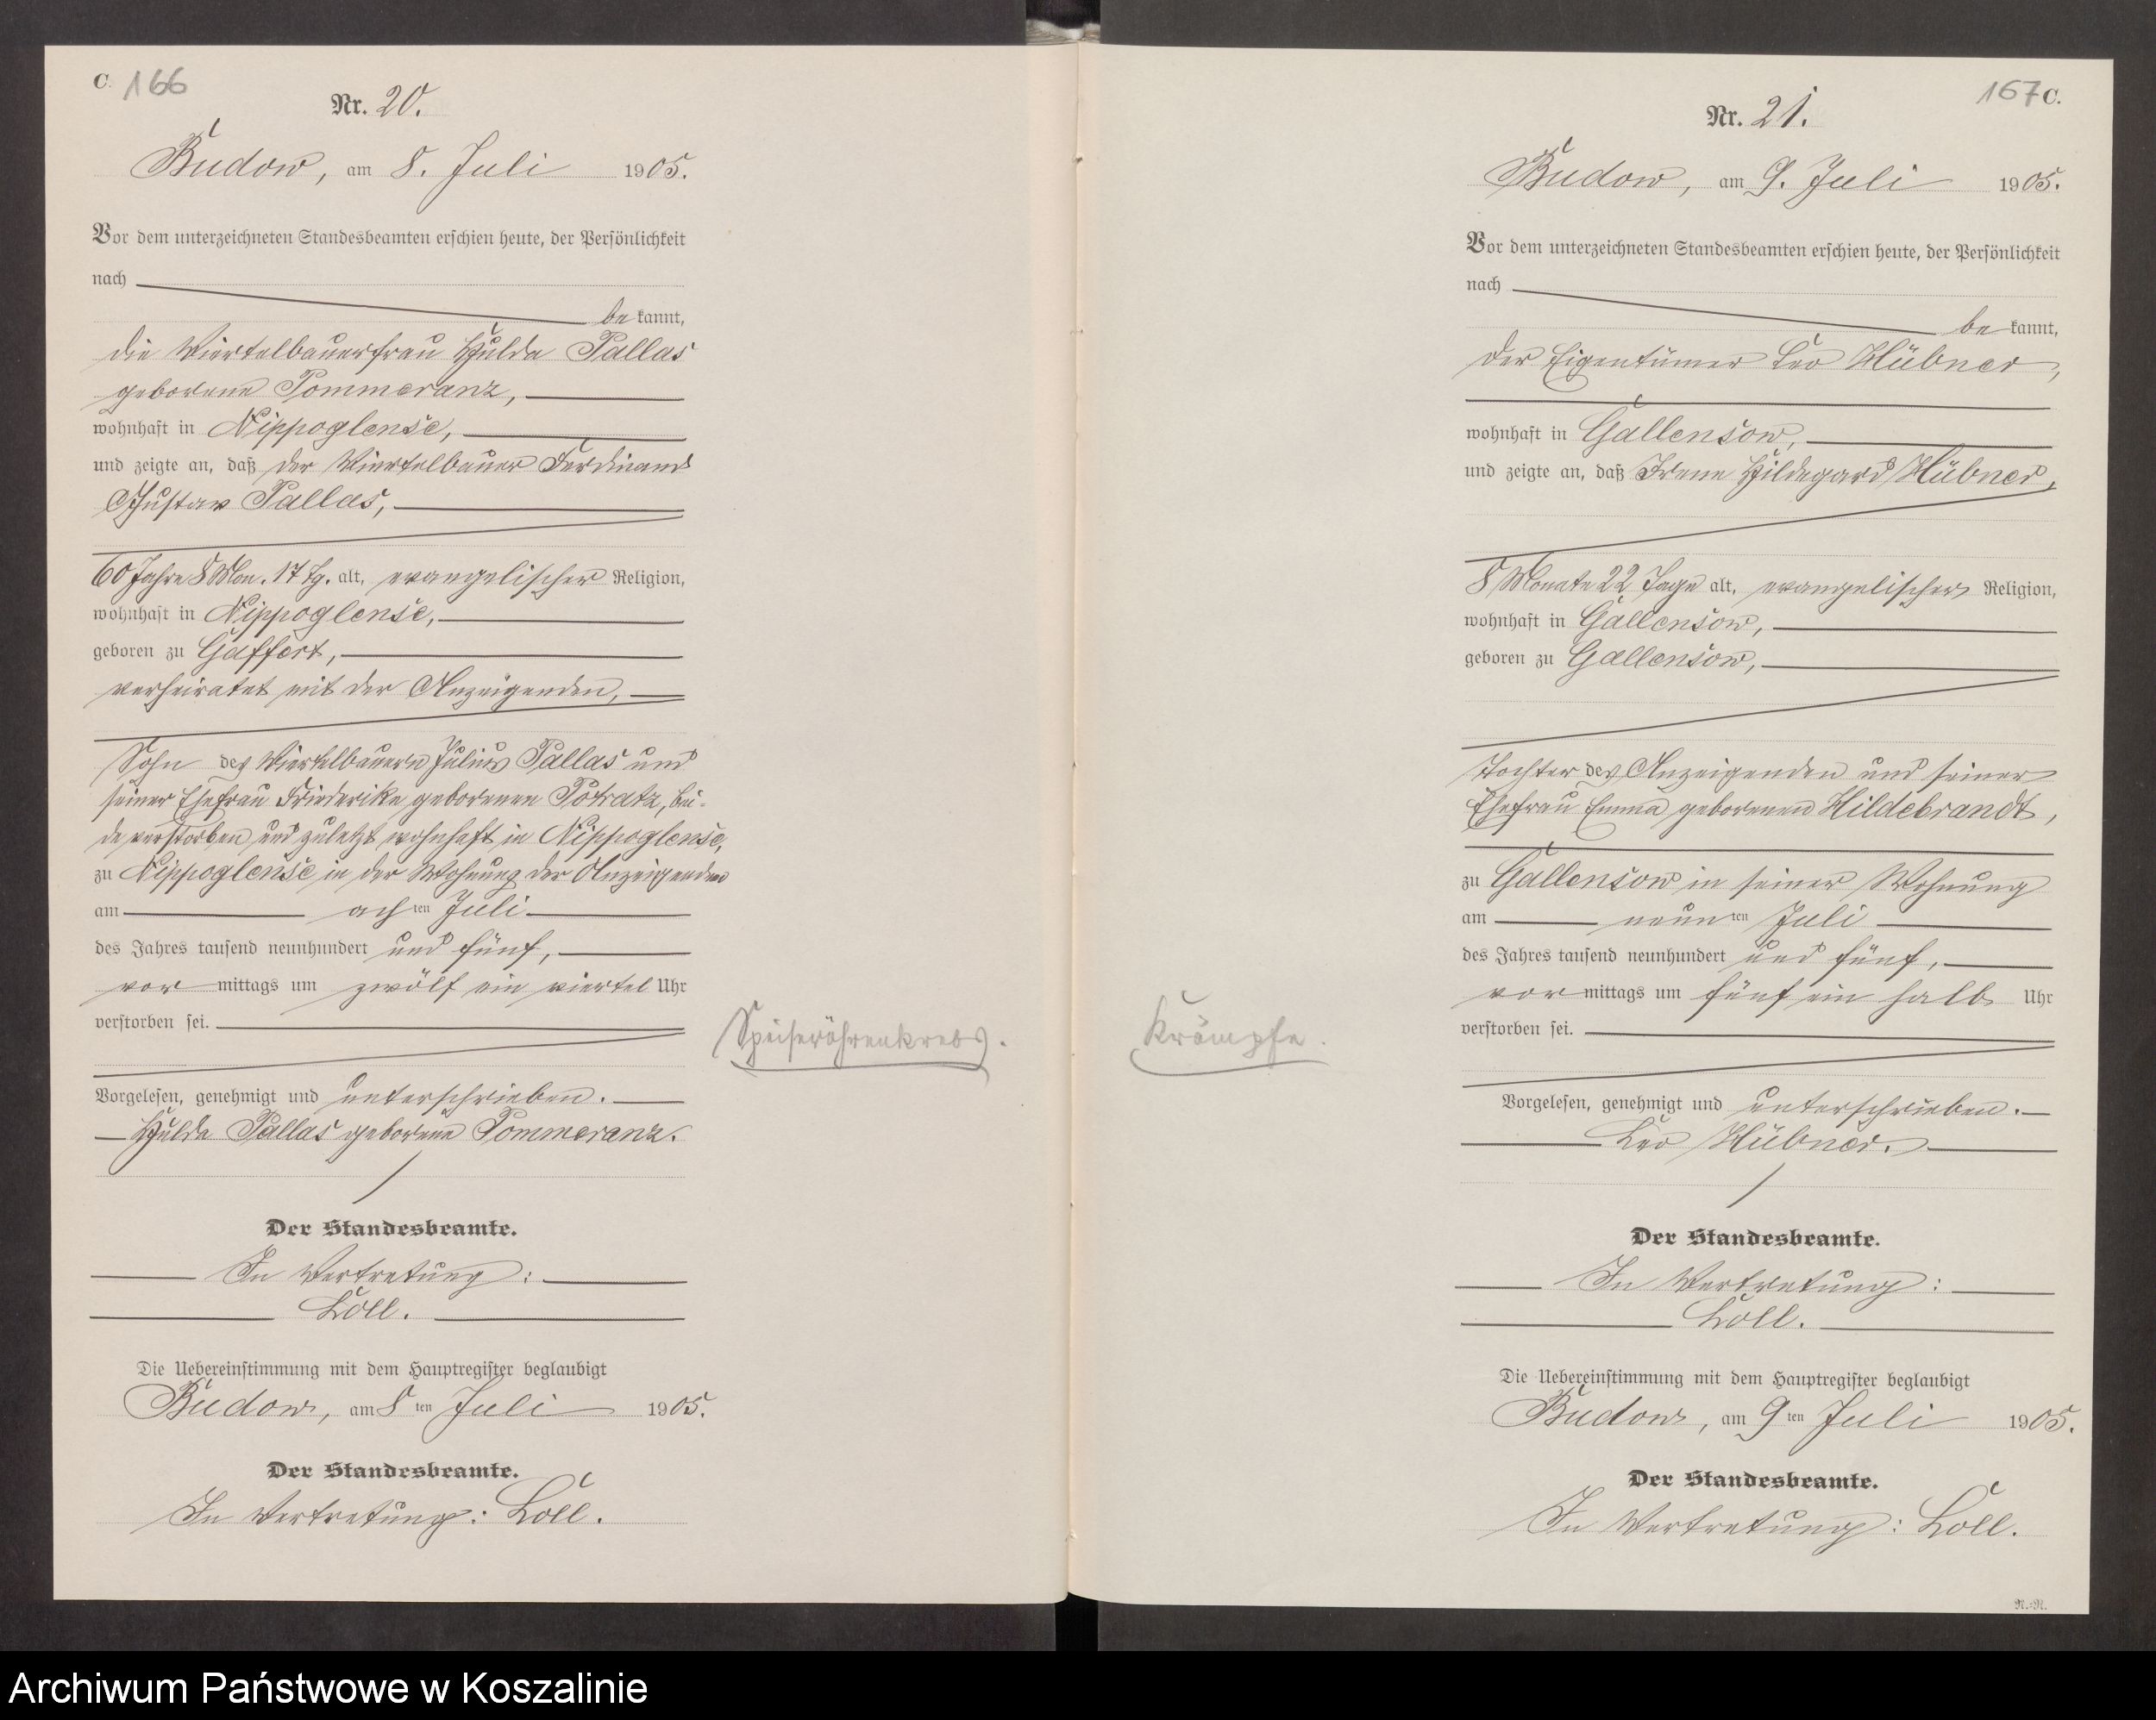 C. 166
Nr. 20.
Budow, am 8. Juli 1905.
Vor dem unterzeichneten Standesbeamten erschien heute, der Persönlichkeit
nach
bekannt,
die Viertelbauerfrau Hulda Pallas
geborene Pommeranz,
wohnhaft in Nippoglense,
und zeigte an, daß der Viertelbauer Ferdinand
Gustav Pallas,
60 Jahre 8 Mon. 17 Tg. alt, evangelischer Religion,
wohnhaft in Nippoglense,
geboren zu Gaffert,
verheiratet mit der Anzeigenden,
Sohn des Viertelbauern Julius Pallas und
seiner Ehefrau Friederike geborenen Potratz, bei-
de verstorben und zuletzt wohnhaft in Nippoglense,
zu Nippoglense in der Wohnung der Anzeigenden
am achten Juli
des Jahres tausend neunhundert und fünf,
vormittags um zwölf ein viertel Uhr
verstorben sei.
Speiseröhrenkrebs.
Vorgelesen, genehmigt und unterschrieben.
Hulda Pallas geborene Pommeranz.
Der Standesbeamte.
In Vertretung:
Loll.
Die Uebereinstimmung mit dem Hauptregister beglaubigt
Budow, am 8ten Juli 1905.
Der Standesbeamte.
In Vertretung: Loll.
167 C.
Nr. 21.
Budow, am 9. Juli 1905.
Vor dem unterzeichneten Standesbeamten erschien heute, der Persönlichkeit
nach
bekannt,
der Eigentümer Leo Hübner,
wohnhaft in Gallensow,
und zeigte an, daß Irene Hildegard Hübner,
8 Monate 22 Tage alt, evangelischer Religion,
wohnhaft in Gallensow,
geboren zu Gallensow,
Tochter des Anzeigenden und seiner
Ehefrau Emma geborenen Hildebrandt,
zu Gallensow in seiner Wohnung
am neunten Juli
des Jahres tausend neunhundert und fünf,
vormittags um fünf ein halb Uhr
verstorben sei.
Krämpfe.
Vorgelesen, genehmigt und unterschrieben.
Leo Hübner.
Der Standesbeamte.
In Vertretung:
Loll.
Die Uebereinstimmung mit dem Hauptregister beglaubigt
Budow, am 9ten Juli 1905.
Der Standesbeamte.
In Vertretung: Loll.
N.-N.
Archiwum Państwowe w Koszalinie